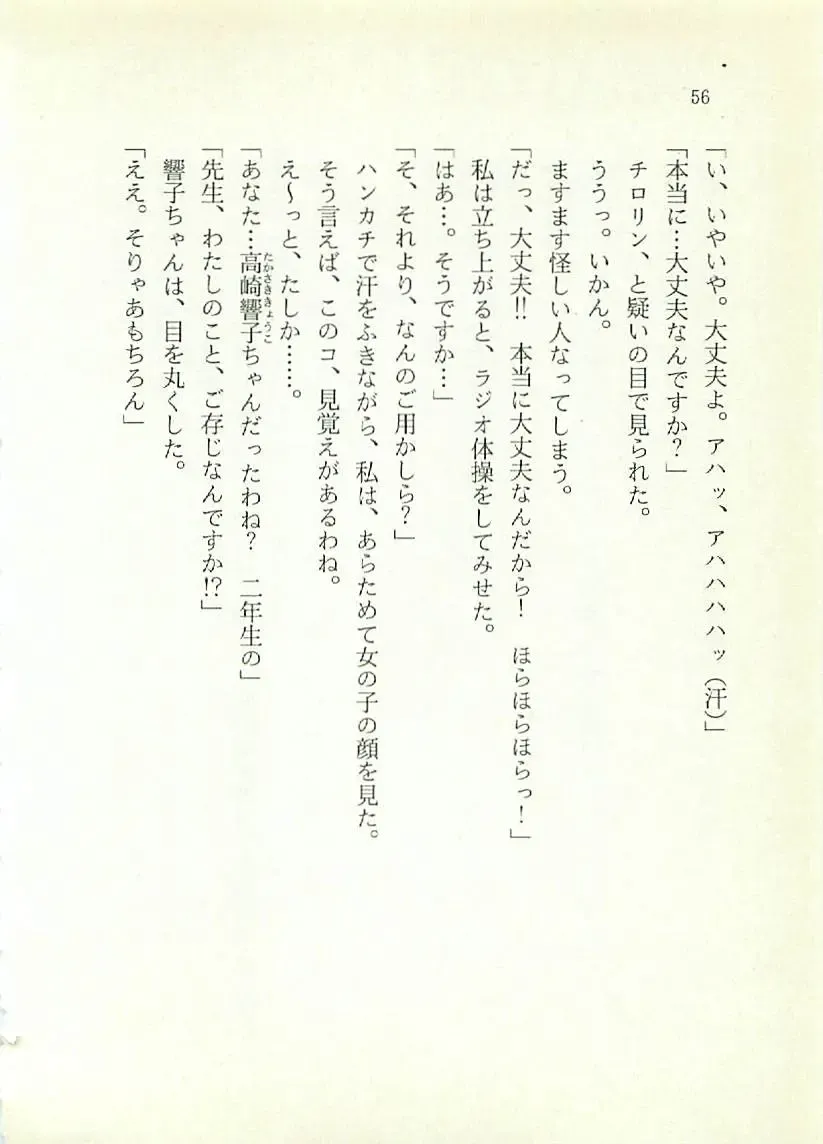 56
「い、いやいや。大丈夫よ。アハッ、アハハハハッ（汗）」
「本当に…大丈夫なんですか？」
チロリン、と疑いの目で見られた。
ううっ。いかん。
ますます怪しい人なってしまう。
「だっ、大丈夫!!　本当に大丈夫なんだから！　ほらほらほらっ！」
私は立ち上がると、ラジオ体操をしてみせた。
「はあ…。そうですか…」
「そ、それより、なんのご用かしら？」
ハンカチで汗をふきながら、私は、あらためて女の子の顔を見た。
そう言えば、このコ、見覚えがあるわね。
え〜っと、たしか……。
「あなた…高崎響子ちゃんだったわね？　二年生の」
たかさききょうこ
「先生、わたしのこと、ご存じなんですか!?」
響子ちゃんは、目を丸くした。
「ええ。そりゃあもちろん」